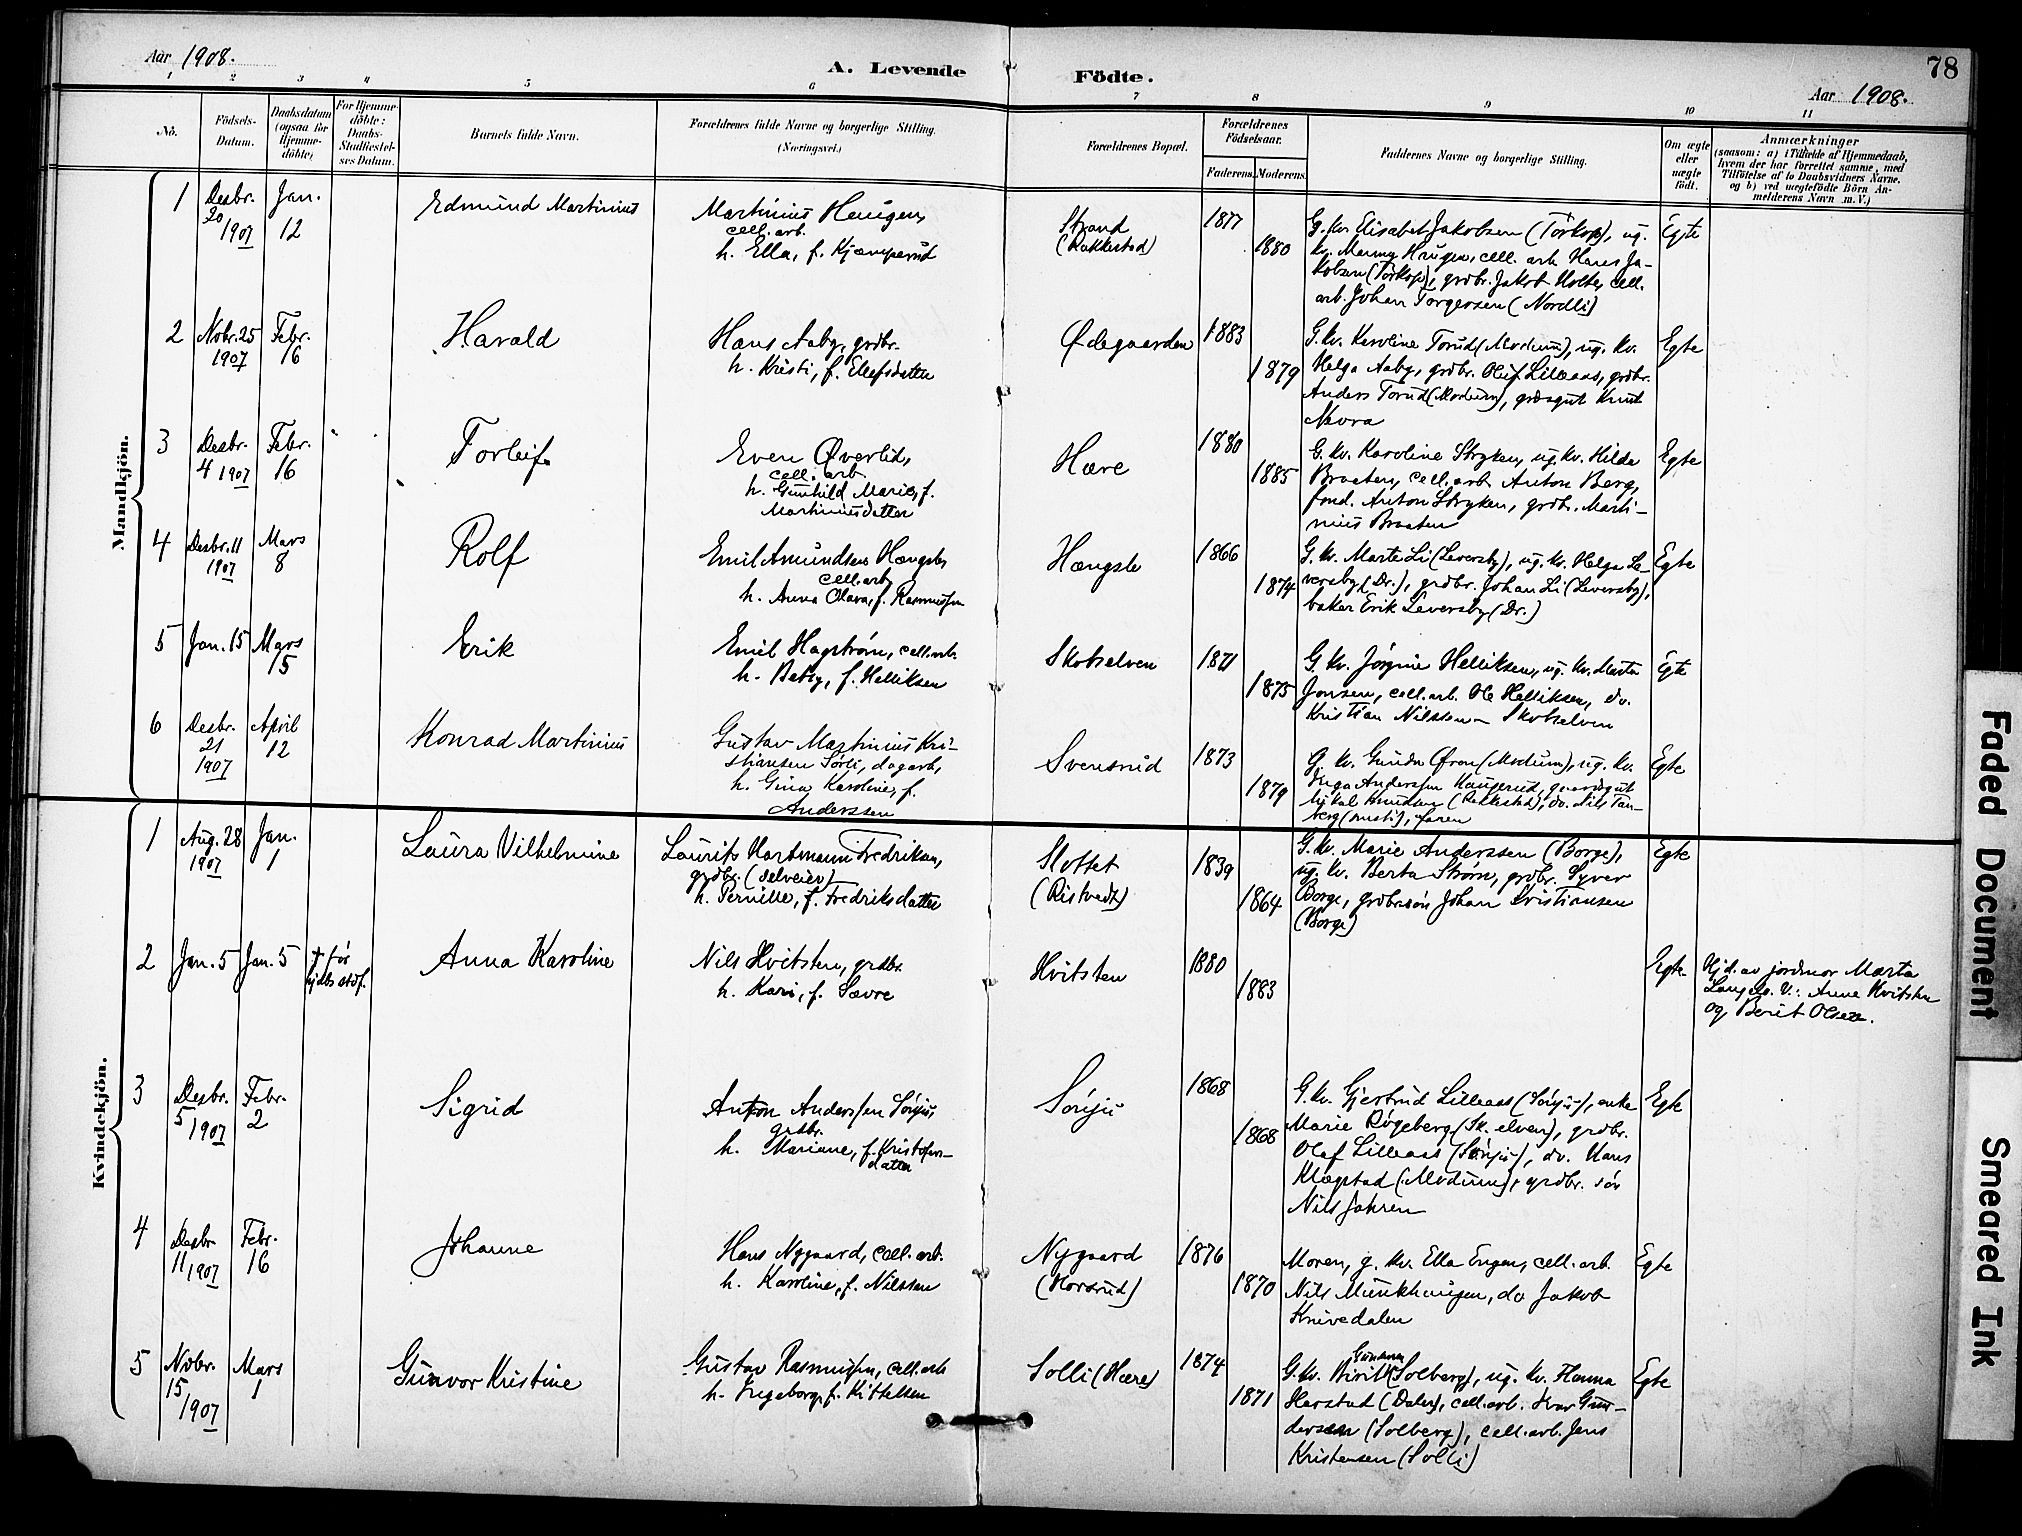 Aar 1908.
A. Levende Födte.
78
Aar 1908.
1 2 3 4 5 6 7 8 9 10 11
No.
Födsels-Datum.
Daabsdatum (ogsaa for Hjemme-döbte)
For Hjemme-döbte: Daabs-Stadfæstel-ses Datum.
Barnets fulde Navn.
Forældrenes fulde Navne og borgerlige Stilling. (Næringsvei.)
Forældrenes Bopæl.
Forældrenes Födselsaar.
Faderens. Moderens.
Faddernes Navne og borgerlige Stilling.
Om ægte eller uægte födt.
Anmærkninger
(saasom: a) i Tilfælde af Hjemmedaab, hvem der har forrettet samme, med Tilföielse af to Daabsvidners Navne. og b) ved uægtefödte Börn An-melderens Navn m.V.)
Mandkjön.
1 Desbr. 20 1907 Jan. 12 Edmund Martinius
Martinius Haugen,
cell. arb.
h. Ella, f. Kjæmperud
Strand
(Rakkestad)
1877 1880
G. kv. Elisabet Jakobsen (Torkop), ug.
kv. Menny Haugen, cell. arb. Hans Ja-
kobsen (Torkop), grdbr. Jakob Holte, cell.
arb. Johan Torgersen (Nordli)
Egte
2 Nobr. 25 1907 Febr. 16 Harald
Hans Aaby, grdbr.
h. Kristi, f. Elefsdatter
Ødegaarden 1883 1879
G. kv. Karoline Torud (Modum), ug. kv.
Helga Aaby, grdbr. Oluf Lilleaas, grdbr.
Anders Torud (Modum), grdsgut Knut
Mora
Egte
3 Desbr. 4 1907 Febr. 16 Torleif
Even Øverlid,
cell. arb.
h. Gunhild Marie, f.
Martiniusdatter
Hære 1880 1885
G. kv. Karoline Stryken, ug. kv. Hilda
Braaten, cell. arb. Anton Berg,
ford. Anton Stryken, grdbr. Marti-
nius Braaten
Egte
4 Desbr. 11 1907 Mars 8 Rolf
Emil Amundsen Hængsle,
cell. arb.
h. Anna Olava, f. Rasmussen
Hængsle 1866 1874
G. kv. Marte Li (Leversby), ug. kv. Helga Le-
versby (Dr.), grdbr. Johan Li (Leversby),
baker Erik Leversby (Dr.)
Egte
5 Jan. 15 Mars 15 Erik
Emil Hagstrøm, cell. arb.
h. Betsy, f. Helliksen
Skotselven 1871 1875
G. kv. Jørgine Helliksen, ug. kv. Marta
Jonsen, cell. arb. Ole Helliksen, do.
Kristian Nilssen - Skotselven
Egte
6 Desbr. 21 1907 April 12 Konrad Martinius
Gustav Martinius Kri-
stiansen Sørli, dagarb,
h. Gina Karoline, f.
Anderssen
Svensrud 1873 1879
G. kv. Øren (Modum), ug. kv.
Inga Anderssen Haugerud,
Mikal Knudsen do. Nils Tan-
berg, faren
Egte
Kvindekjön.
1 Aug. 28 1907 Jan. 1 Laura Vilhelmine
Laurits Hartmann Fredriksen,
grdbr. (selveier)
h. Pernille, f. Fredriksdatter
Slottet
(Ristvedt)
1839 1864
G. kv. Marie Anderssen (Borge),
ug. kv. Berta Strøm, grdbr. Syver
Borge, grdbr.søn Johan Kristiansen
(Borge)
Egte
2 Jan. 5 Jan. 5 † før hjdbs stdf. Anna Karoline
Nils Hvitsten, grdbr.
h. Kari, f. Sævre
Hvitsten 1880 1883
Egte
Hjd. av jordmor Marta
V.: Anne Hvitsten
og Berit Olsen.
3 Desbr. 5 1907 Febr. 2 Sigrid
Anton Anderssen Sønju,
grdbr.
h. Mariane, f. Kristofers-
datter
Sønju 1868 1868
G. kv. Gjertrud Lilleaas (Sønju), enke
Marie Røgeberg (Sk. elven), grdbr.
Olaf Lilleaas (Sønju), do. Hans
Klægstad (Modum), grdbr. søn
Nils Jahren
Egte
4 Desbr. 11 1907 Febr. 16 Johanne
Hans Nygaard, cell. arb.
h. Karoline, f. Nilssen
Nygaard
(Horsrud)
1876 1870
Moren, g. kv. Ella Engen, cell. arb.
Nils Munkhaugen, do Jakob
Knivedalen
Egte
5 Nobr. 15 1907 Mars 1 Gunvor Kristine
Gustav Rasmussen, cell. arb
h. Ingeborg, f. Kittelsen
Solli (Hære) 1874 1871
G. kv. Birit (Solberg), ug. kv. Hanna
Harstad (Dalen), cell. arb. Ivar Gun-
dersen (Solberg), cell. arb. Jens
Kristensen (Solli)
Egte
Faded Document
Smeared Ink